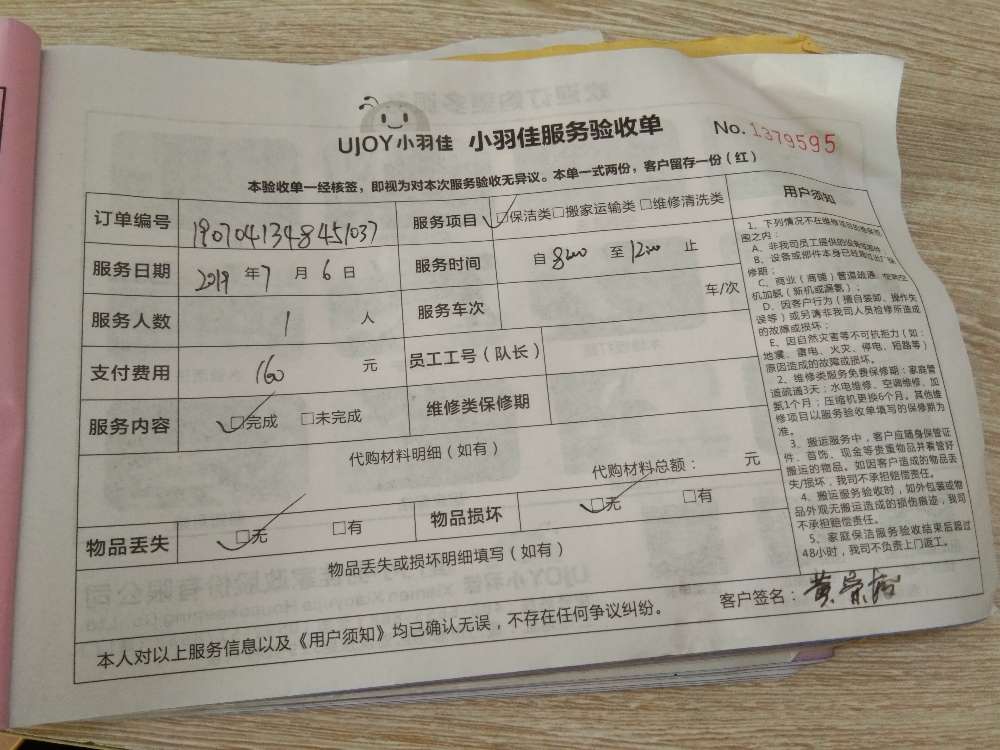 UJOY小羽佳 小羽佳服务验收单 No. 1379595
本验收单一经核签，即视为对本次服务验收无异议。本单一式两份，客户留存一份（红）
订单编号 1907041348451037 服务项目 □保洁类□搬家运输类□维修清洗类
服务日期 2019 年 7 月 6 日 服务时间 自 8:00 至 12:00 止
服务人数 1 人 服务车次 车/次
支付费用 160 元 员工工号（队长）
服务内容 □完成 □未完成 维修类保修期
代购材料明细（如有）
代购材料总额： 元
物品丢失 □无 □有 物品损坏 □无 □有
物品丢失或损坏明细填写（如有）
本人对以上服务信息以及《用户须知》均已确认无误，不存在任何争议纠纷。 客户签名：黄
用户须知
1、下列情况不在维修项目的维保范
围之内：
A、非我司员工提供的设备或部件
B、设备或部件本身已经超过出厂保
修期；
C、商业（商铺）管道疏通、空调空
机加氨（新机或漏氨）；
D、因客户行为（擅自装卸、操作失
误等）或另请非我司人员检修所造成
的故障或损坏；
E、因自然灾害等不可抗拒力（如：
地震、雷电、火灾、停电、短路等）
原因造成的故障或损坏。
2、维修类服务免费保修期：家庭管
道疏通3天；水电维修、空调维修、加
氨1个月；压缩机更换6个月。其他维
修项目以服务验收单填写的保修期为
准。
3、搬运服务中，客户应随身保管证
件、首饰、现金等贵重物品并看管好
搬运的物品。如因客户造成的物品丢
失/损坏，我司不承担赔偿责任。
4、搬运服务验收时，如外包装或物
品外观无搬运造成的损伤痕迹，我司
不承担赔偿责任。
5、家庭保洁服务验收结束后超过
48小时，我司不负责上门返工。